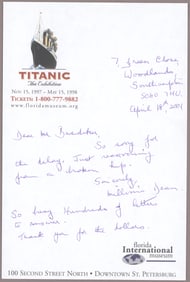 TITANIC
The Exhibition
NOV 15, 1997 – MAY 15, 1998
TICKETS: 1-800-777-9882
www.floridamuseum.org
Woodlands,
Southampton
SO40 7HU
April 18th
Dear Mr
So sorry for
the delay. Just recovering
from a broken hip.
Sincerely,
Millvina Dean
So busy hundreds of letters
to answer.
Thank you for the dollars.
florida
International
museum
100 SECOND STREET NORTH • DOWNTOWN ST. PETERSBURG